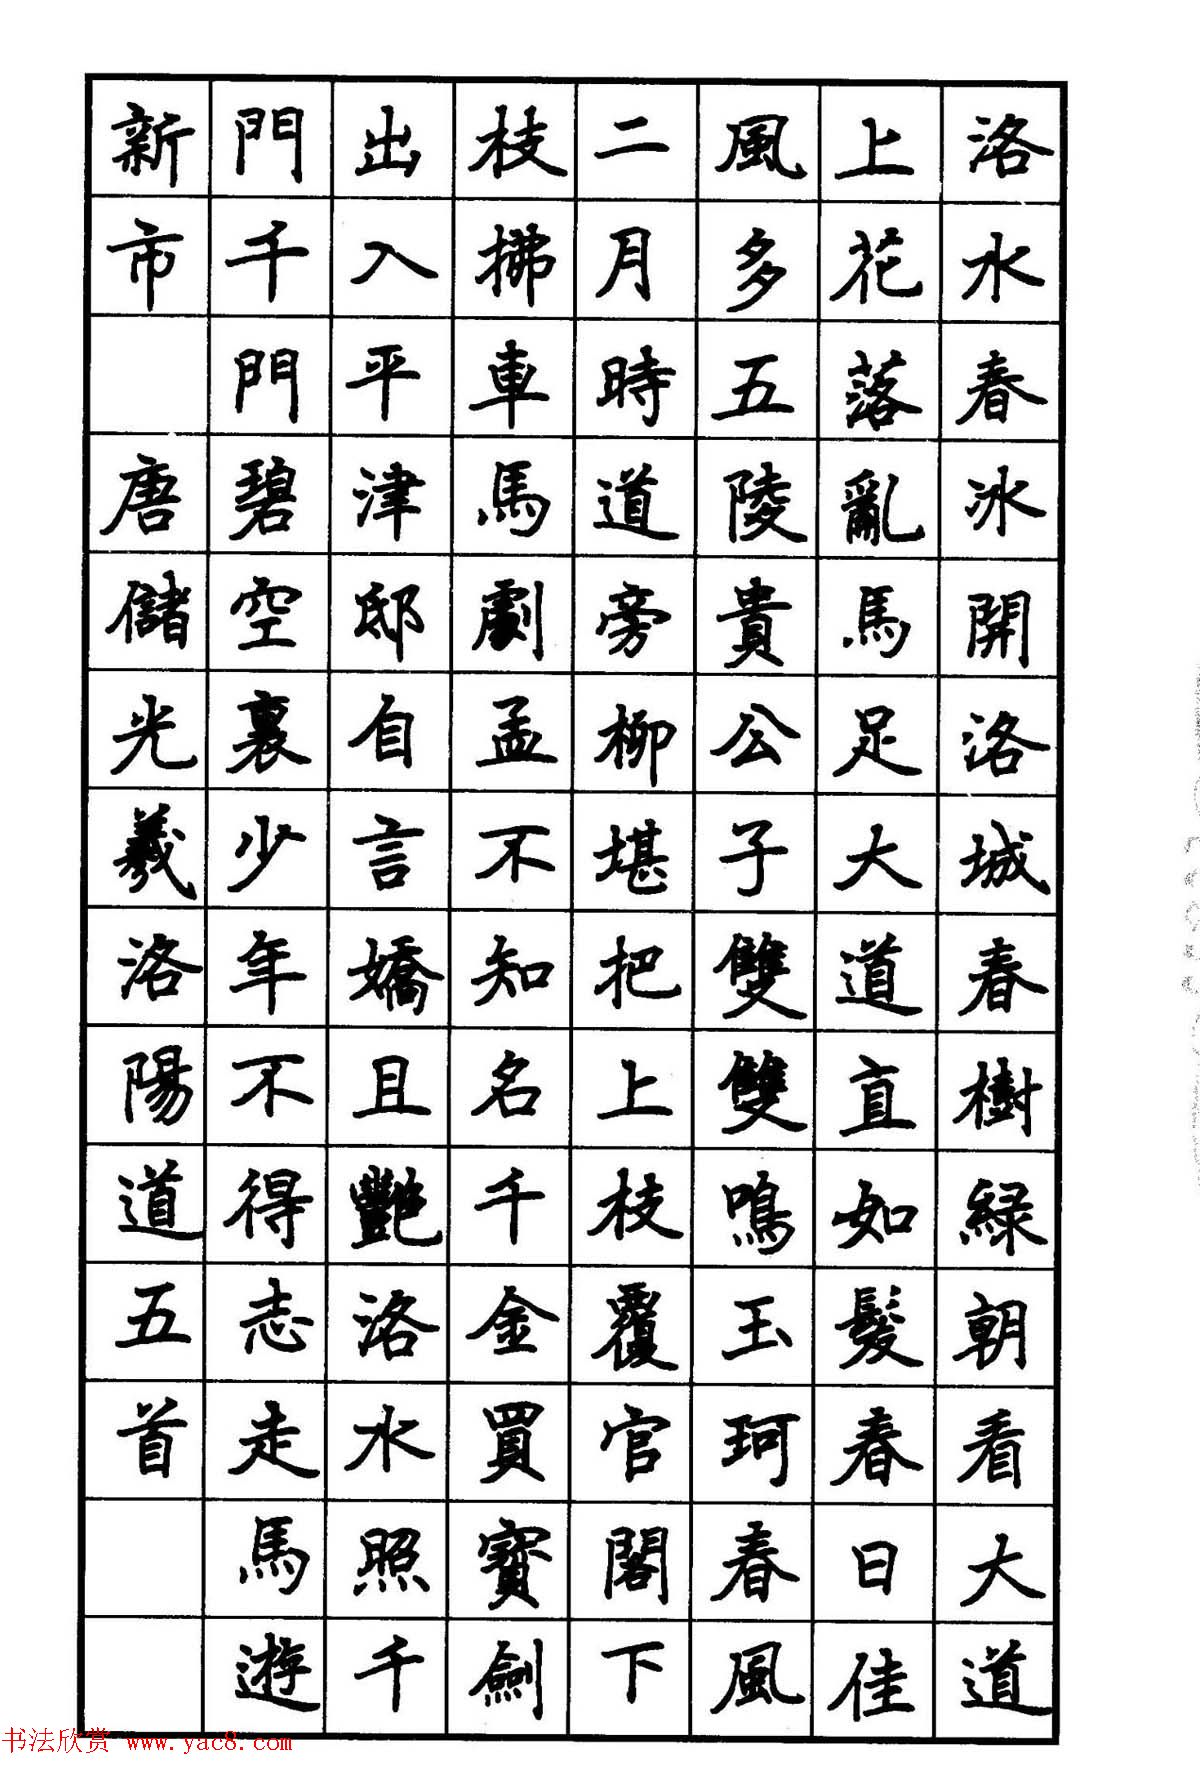 洛水春冰開洛城春樹緑朝看大道
上花落亂馬足大道直如髮春日佳
風多五陵貴公子雙雙鳴玉珂春風
二月時道旁柳堪把上枝覆官閣下
枝拂車馬劇孟不知名千金買寶劍
出入平津邸自言嬌且艷洛水照千
門千門碧空裏少年不得志走馬遊
新市 唐儲光羲洛陽道五首
书法欣赏 www.yac8.com